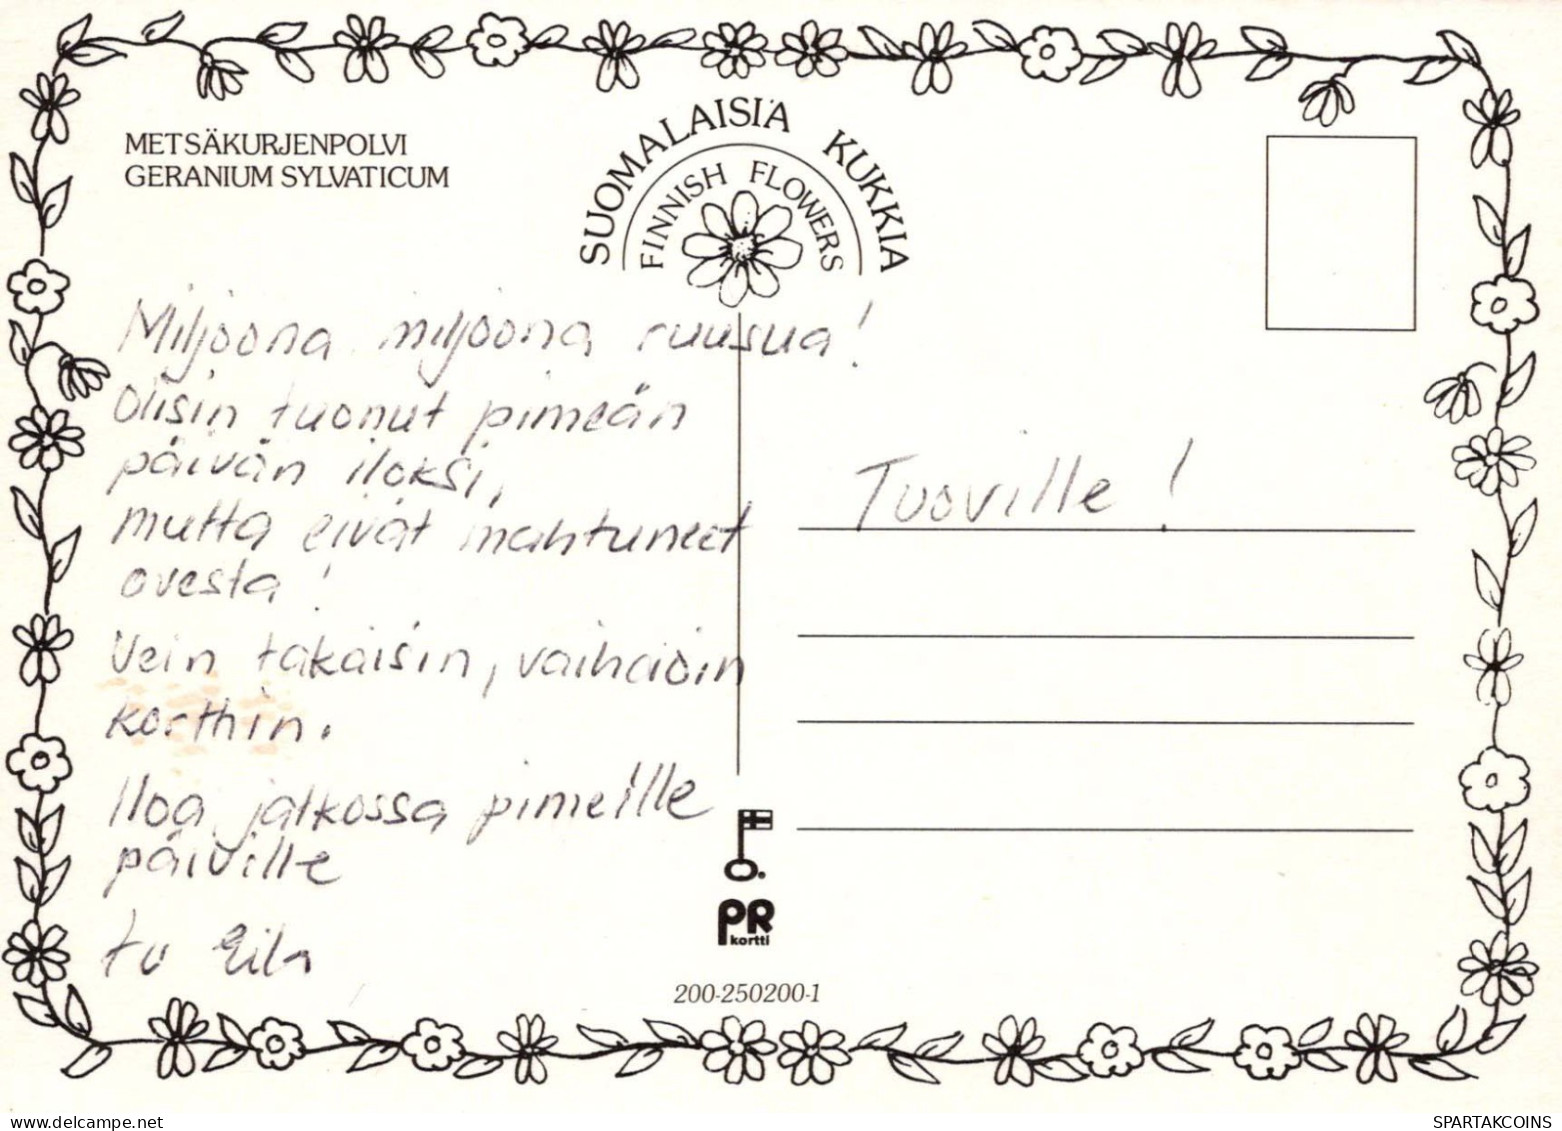 METSÄKURJENPOLVI
GERANIUM SYLVATICUM
SUOMALAISIA KUKKIA
FINNISH FLOWERS
Miljoona miljoona ruusua!
Olisin tuonut pimeän
päivän iloksi,
mutta eivät mahtuneet
ovesta!
Vein takaisin, vaihdoin
korttiin.
Iloa jatkossa pimeille
päiville
tv Eila
Tuoville!
PR
kortti
200-250200-1
delcampe.net
SPARTAKCOINS